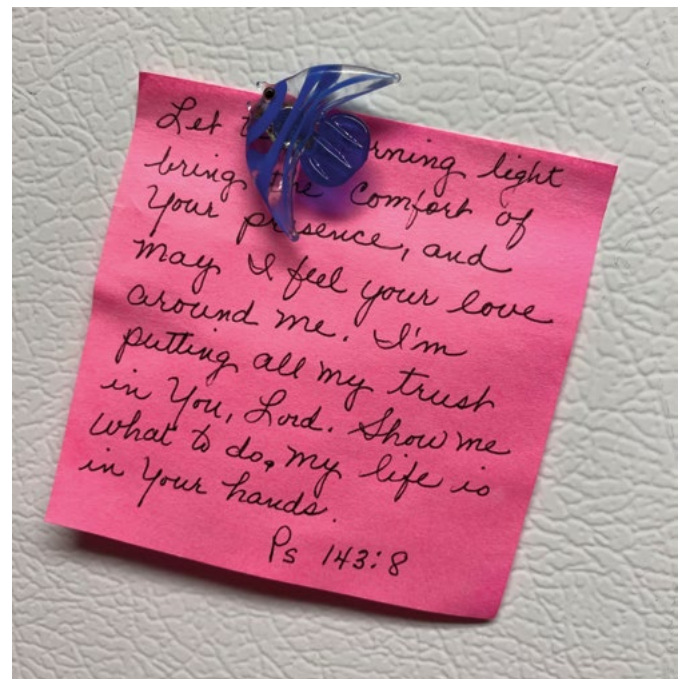 Let the morning light
bring the comfort of
Your presence, and
may I feel your love
around me. I'm
putting all my trust
in You, Lord. Show me
what to do, my life is
in Your hands.
Ps 143:8